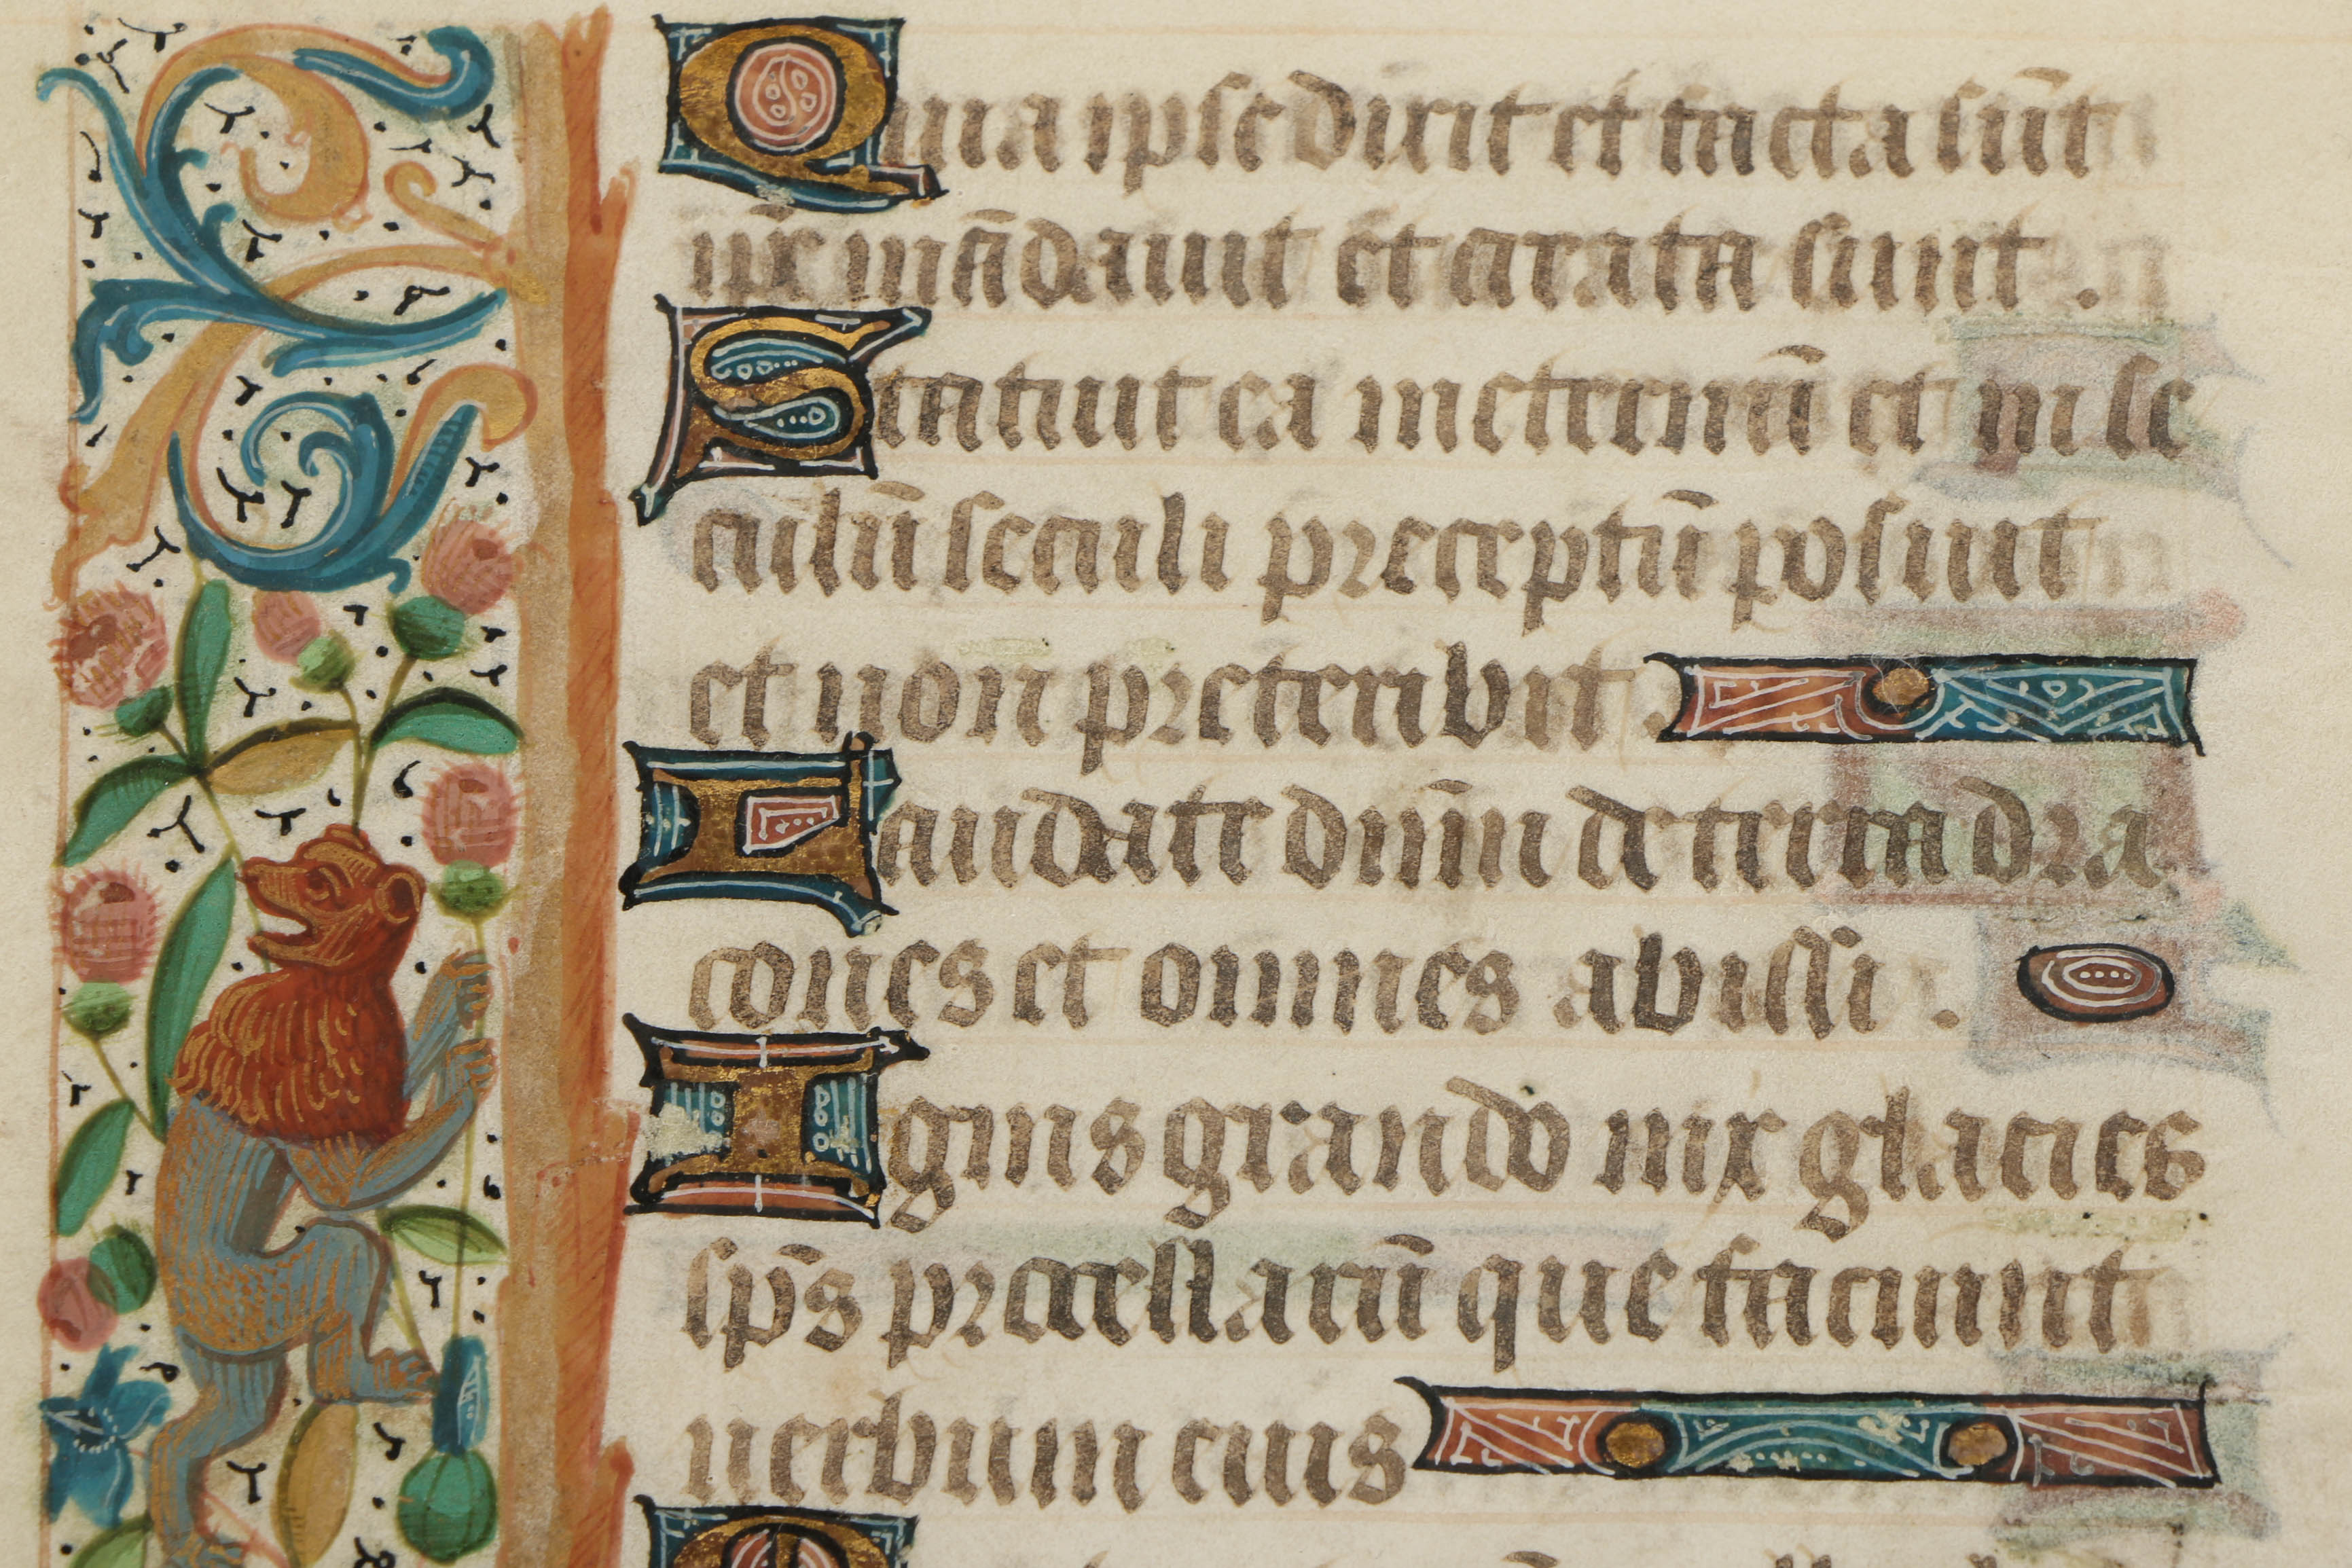 Quia ipse dixit et facta sūt
ip̄e mādauit et creata sunt .
Statuit ea ineternū et in se
culū seculi preceptū posuit
et non preteribit .
Laudate dn̄m de terra dra
cones et omnes abissi .
Ignis grando nix glacies
sp̄s procellarū que faciunt
uerbum eius